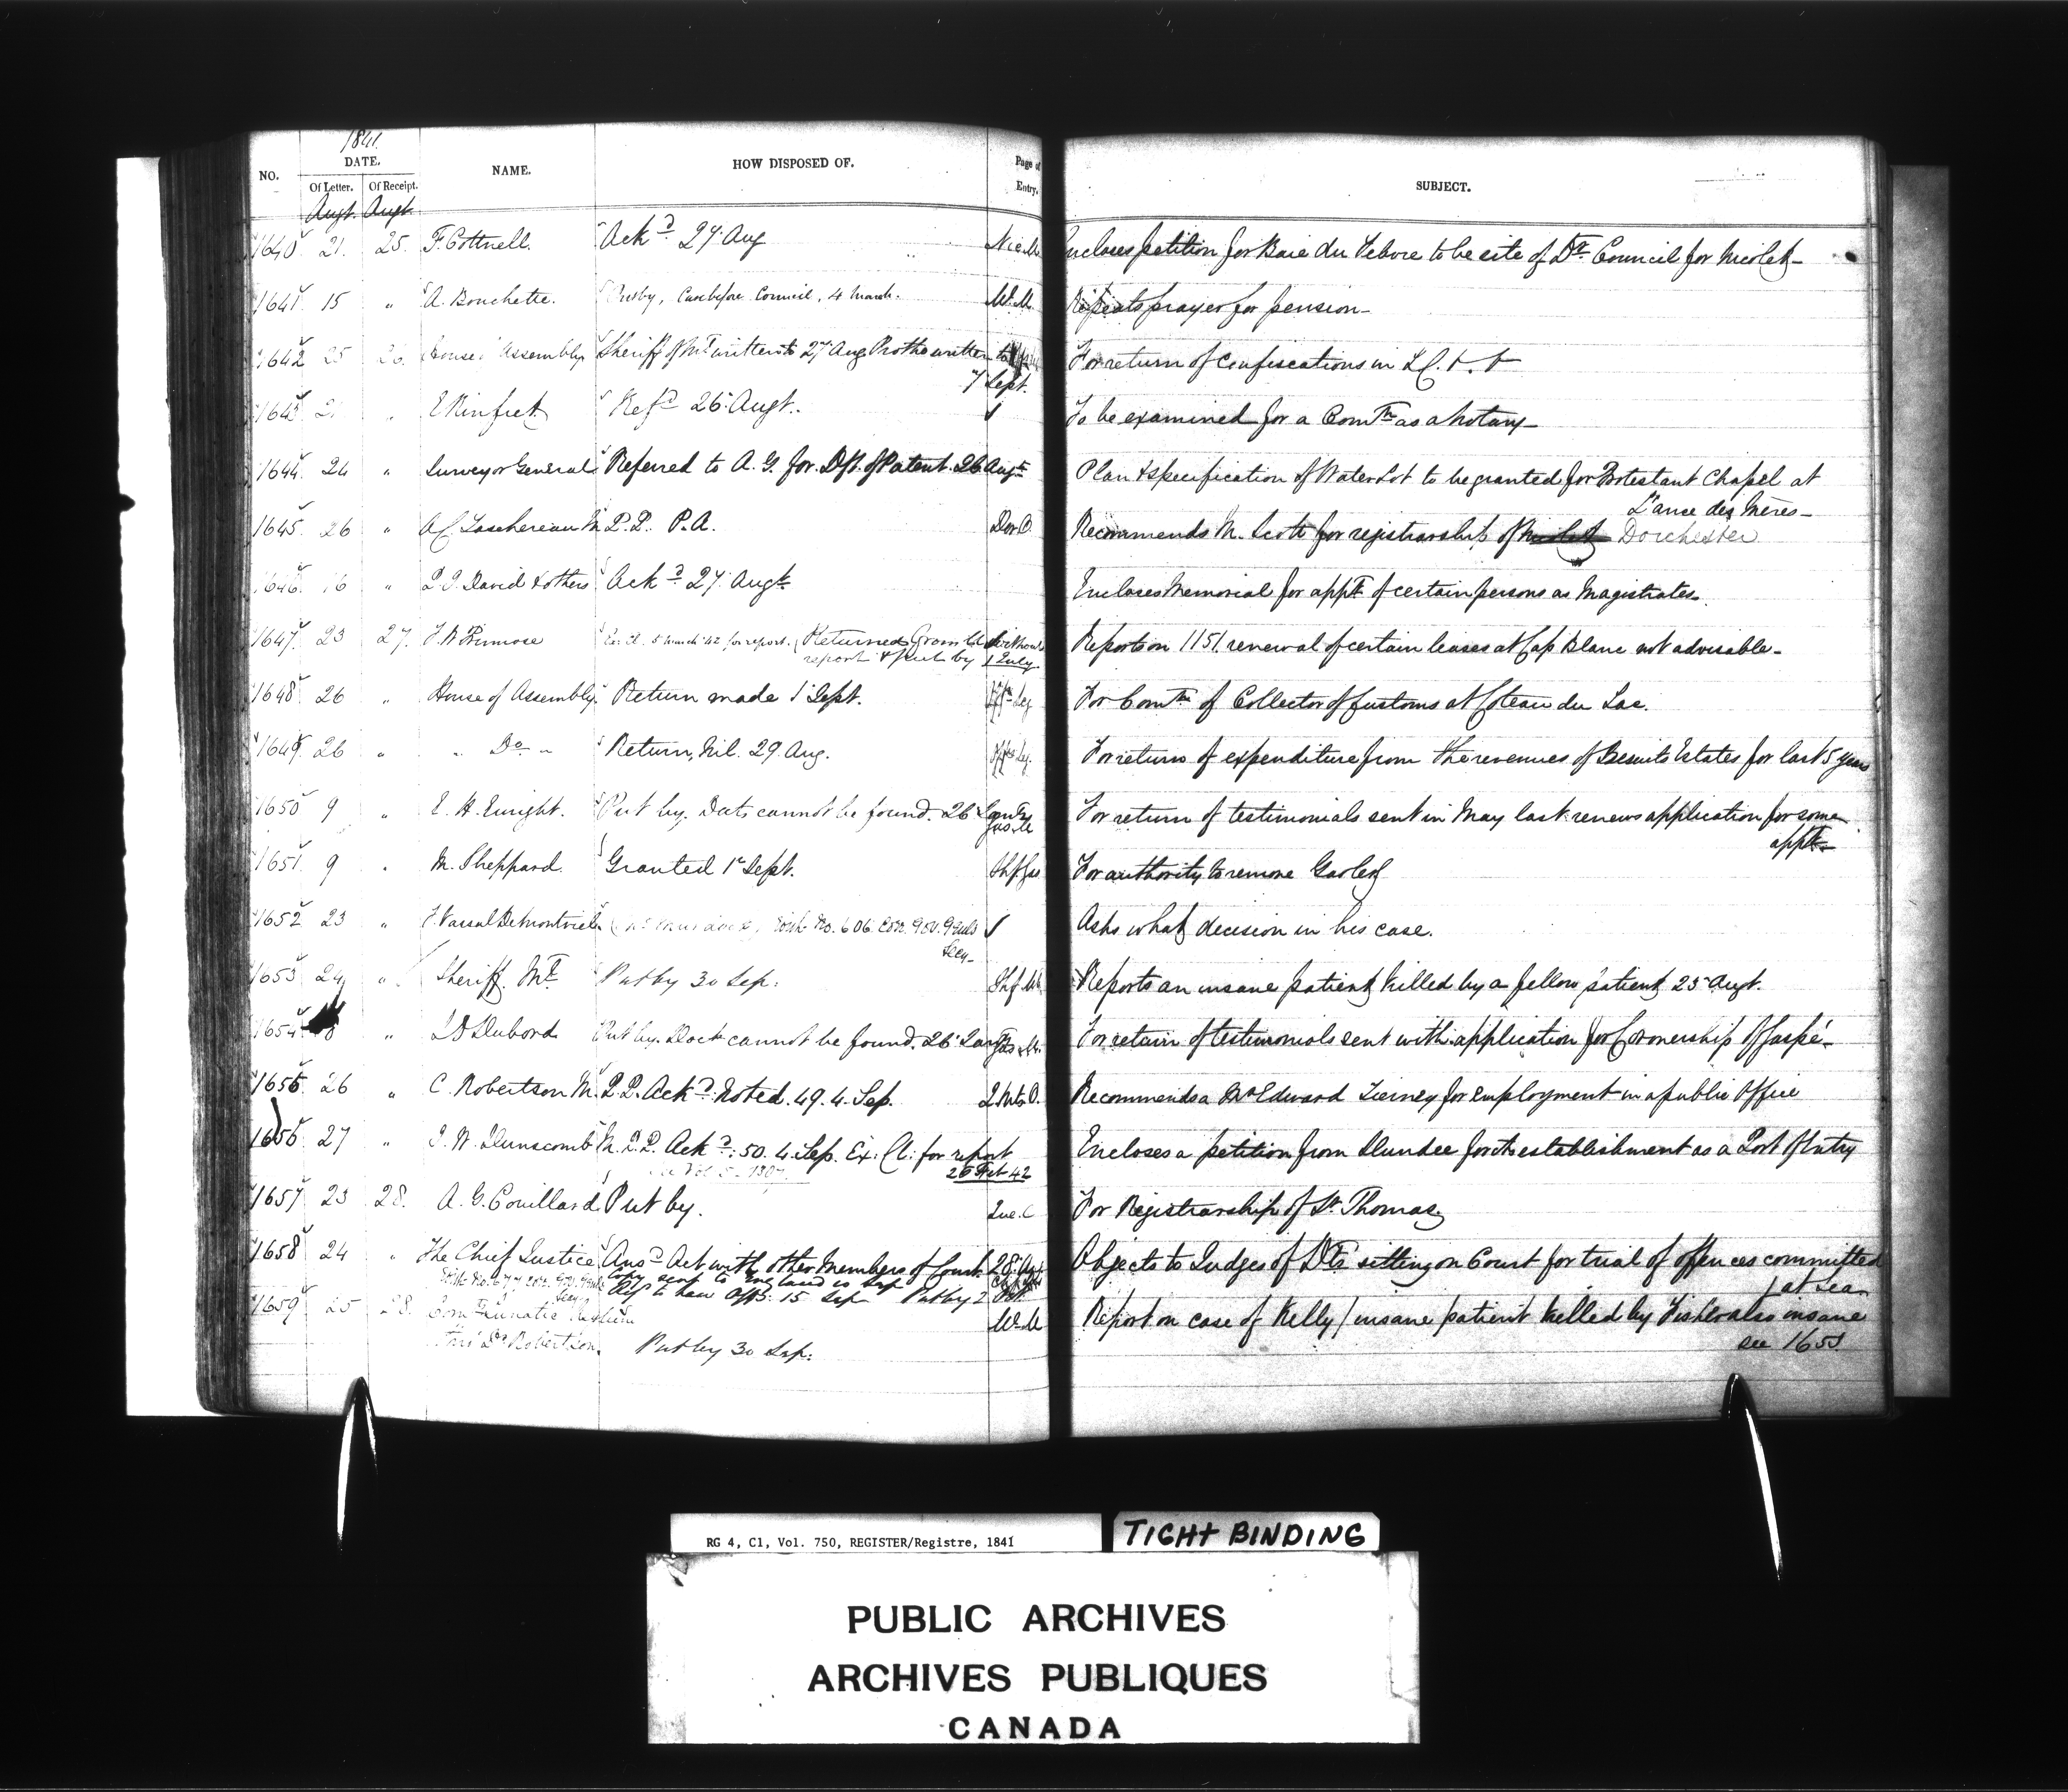 1841.
NO. DATE. NAME. HOW DISPOSED OF. Page of Entry. SUBJECT.
Of Letter. Of Receipt.
Augt. Augt.
1640 21. 25. F. Cottnell. Ackd 27 Aug Nic. M Encloses petition for Baie du Febvre to be site of Dt Council for Nicolet
1641 15 " A. Bouchette. Put by, Case before Council, 4 March. W. M Repeats prayer for pension
1642 25 26. House Assembly Sheriff of Mt written to 27 Aug Protho written to
7 Sept. For return of confiscations in L C. + +
1643 21 " E Rinfret Refd 26 Augt. To be examined for a Comn as a Notary
1644 24 " Surveyor General Referred to A. G. for Dft. of Patent. 26 Augt Plan & specification of Water Lot to be granted for Protestant Chapel at
L'ance des Mères
1645 26 " A C Taschereau M. P. P. P. A. Dor. O. Recommends M. Scott for registrarship of Nicolet Dorchester
1646 16 " P. D. David & others Ackd 27 Augt Encloses Memorial for appt of certain persons as Magistrates.
1647 23 27. F. W Primrose Ex. Cl. 5 March '42 for report. Returned from Cl without
report & put by 1 July Reports on 1151. renewal of certain leases at Cap Blanc not advisable
1648 26 " House of Assembly. Return made 1 Sept. Leg For Comn of Collector of Customs at Coteau du Lac.
1649 26 " " Do " Return, Nil. 29 Aug. Leg. For return of expenditure from the revenues of Jesuits Estates for last 5 years
1650 9 " E. H. Enright. Put by. Dots cannot be found. 26 Gas. M For return of testimonials sent in May last renews application for some
appt
1651 9 " M. Sheppard. Granted 1st Sept. Shf Gas For authority to remove Gaoler
1652 23 " F. Vassal DeMontviel No. 606 Gov. Secy Asks what decision in his case.
1653 24 " Sheriff. Mt Put by 30 Sep: Shf. Mt Reports an insane patient killed by a fellow patient 23 Augt.
1654 " J D Dubord Put by. Docts cannot be found. 26 Gas. M. For return of testimonials sent with application for Coronership of Gaspé
1655 26 " C. Robertson M. P. P. Ackd Noted. 49. 4. Sep. 2 Mts O. Recommends a Mr Edward Tierney for employment in a public Office
1656 27 " J. W. Dunscomb M. P. P. Ackd: 50. 4. Sep. Ex: Cl: for report
26 Feb 42 Encloses a petition from Dundee for the establishment as a Port of Entry
1657 23 28. A. G. Couillard Put by. Que. C For Registrarship of St. Thomas
1658 24 " The Chief Justice Ansd Act with other Members of Court 28 Aug Objects to Judges of Dts sitting on Court for trial of offences committed
Copy sent to England Sep at sea
Ref to Law Offs: 15 Sep Put by 2 Oct
1659 25 28. Comrs Lunatic Asylum W. M Report on case of Kelly (insane patient killed by Fisher also insane
Dr Robertson. Put by 30 Sep: see 1653
RG 4, C1, Vol. 750, REGISTER/Registre, 1841
TIGHT BINDING
PUBLIC ARCHIVES
ARCHIVES PUBLIQUES
CANADA